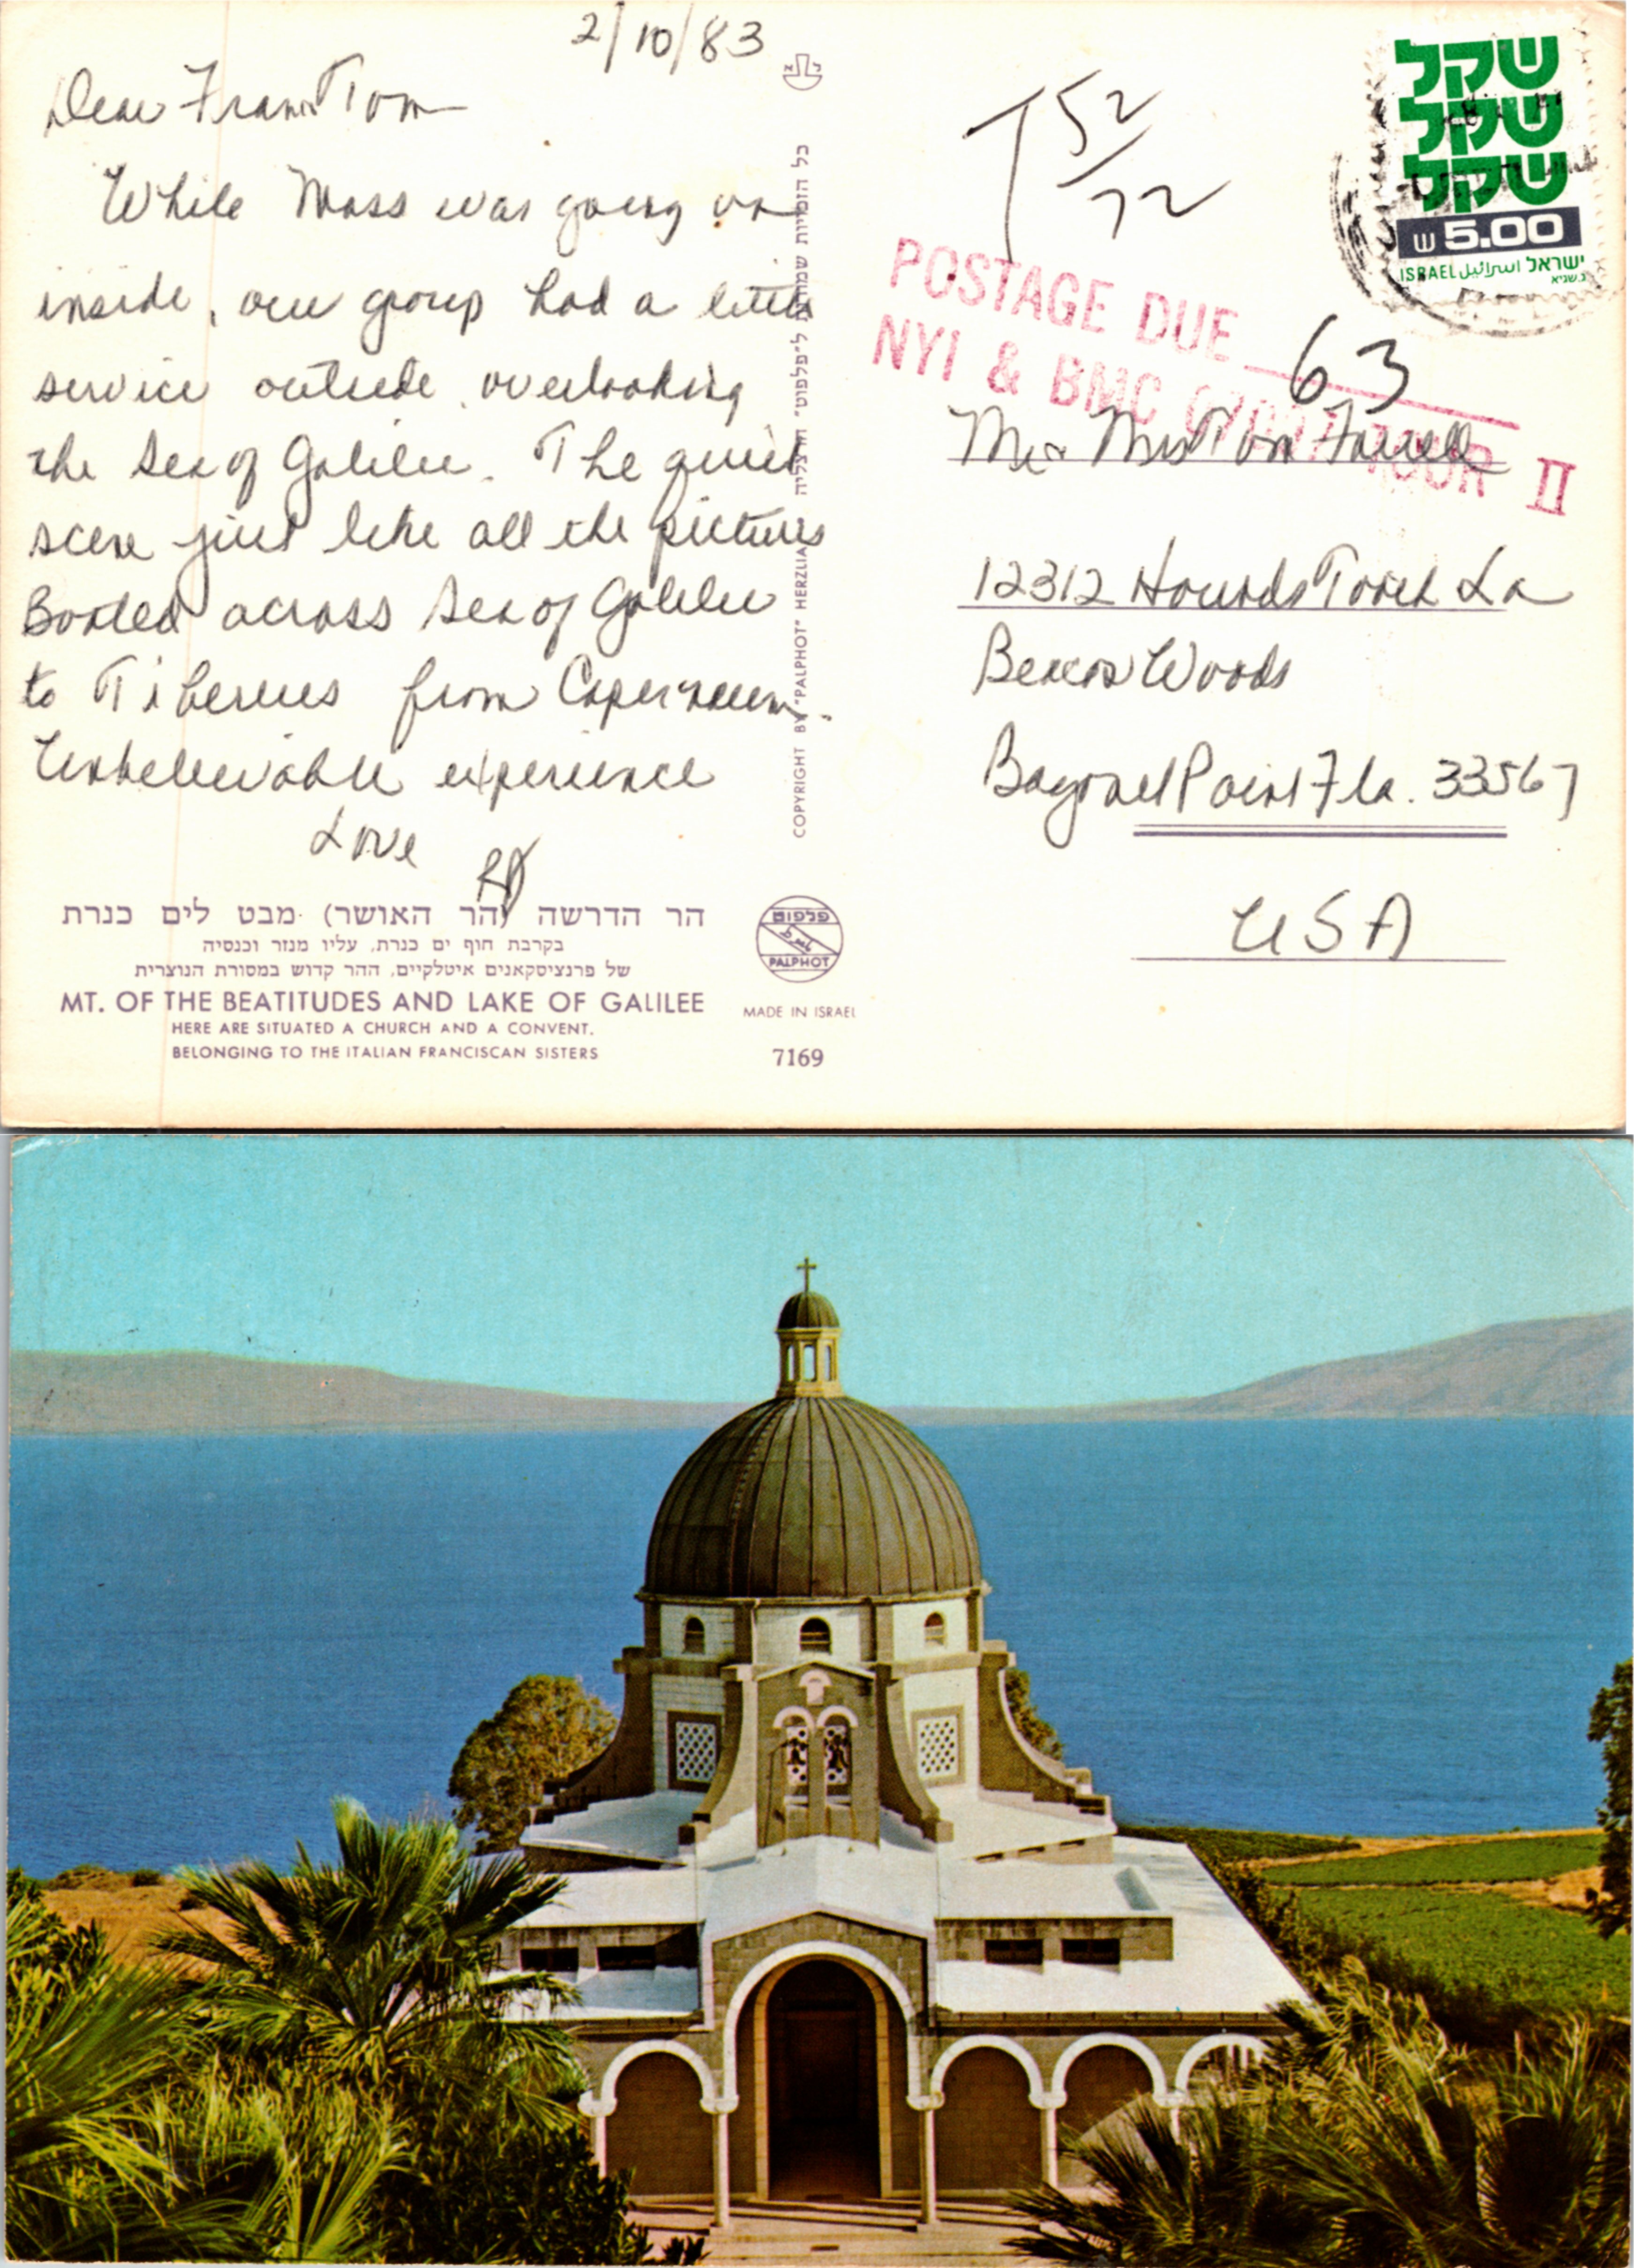 2/10/83
Dear Fran & Tom
While Mass was going on
inside, our group had a little
service outside overlooking
the Sea of Galilee. The quiet
scene just like all the pictures
Boated across Sea of Galilee
to Tiberius from Capernaum.
Unbelievable experience
Love
הר הדרשה (הר האושר) מבט לים כנרת
בקרבת חוף ים כנרת, עליו מנזר וכנסיה
של פרנציסקאנים איטלקיים, ההר קדוש במסורת הנוצרית
MT. OF THE BEATITUDES AND LAKE OF GALILEE
HERE ARE SITUATED A CHURCH AND A CONVENT.
BELONGING TO THE ITALIAN FRANCISCAN SISTERS
כל הזכויות שמורות ל"פלפוט" הרצליה
COPYRIGHT BY "PALPHOT" HERZLIA
פלפוט
PALPHOT
MADE IN ISRAEL
7169
T 52/72
שקל
שקל
שקל
שקל
ש 5.00
ISRAEL اسرائيل ישראל
POSTAGE DUE 63
NYI & BMC II
Mr & Mrs Tom Farrell
12312 Hounds Tooth La
Beacon Woods
Bayonet Point Fla. 33567
USA